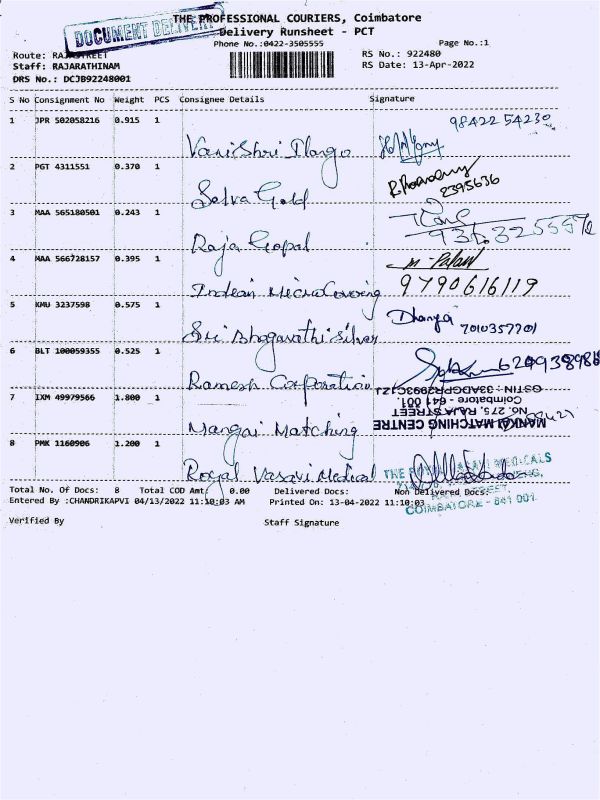 DOCUMENT DELIVERY
THE PROFESSIONAL COURIERS, Coimbatore
Delivery Runsheet - PCT
Phone No.:0422-3505555 Page No.:1
Route: RAJASTREET RS No.: 922480
Staff: RAJARATHINAM RS Date: 13-Apr-2022
DRS No.: DCJB92248001
S No Consignment No Weight PCS Consignee Details Signature
1 JPR 502058216 0.915 1 98422 54230
Vanishri Ilango
2 PGT 4311551 0.370 1 2395636
Selva Gold
3 MAA 565180501 0.243 1
Raja Gopal
4 MAA 566728157 0.395 1 9790616119
Indian Micro
5 KMU 3237598 0.575 1 Dhanya 7010357701
Sri Bhagavathi Silver
6 BLT 100059355 0.525 1
Ramesh Corporation
7 IXM 49979566 1.800 1
MANKAI MATCHING CENTRE
No. 275, RAJA STREET
Coimbatore - 641 001.
GSTIN : 33ADGPR2993C1ZJ
Mangai Matching
8 PMK 1160906 1.200 1
Royal Vasavi Medical
THE ROYAL VASAVI MEDICALS
COIMBATORE - 641 001.
Total No. Of Docs: 8 Total COD Amt: 0.00 Delivered Docs: Non Delivered Docs:
Entered By :CHANDRIKAPVI 04/13/2022 11:10:03 AM Printed On: 13-04-2022 11:10:03
Verified By Staff Signature